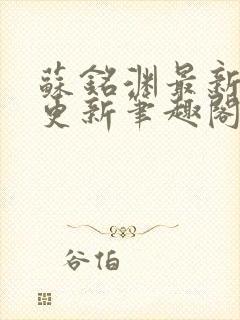 蘇銘渊最新
更新筆趣閣
谷怕